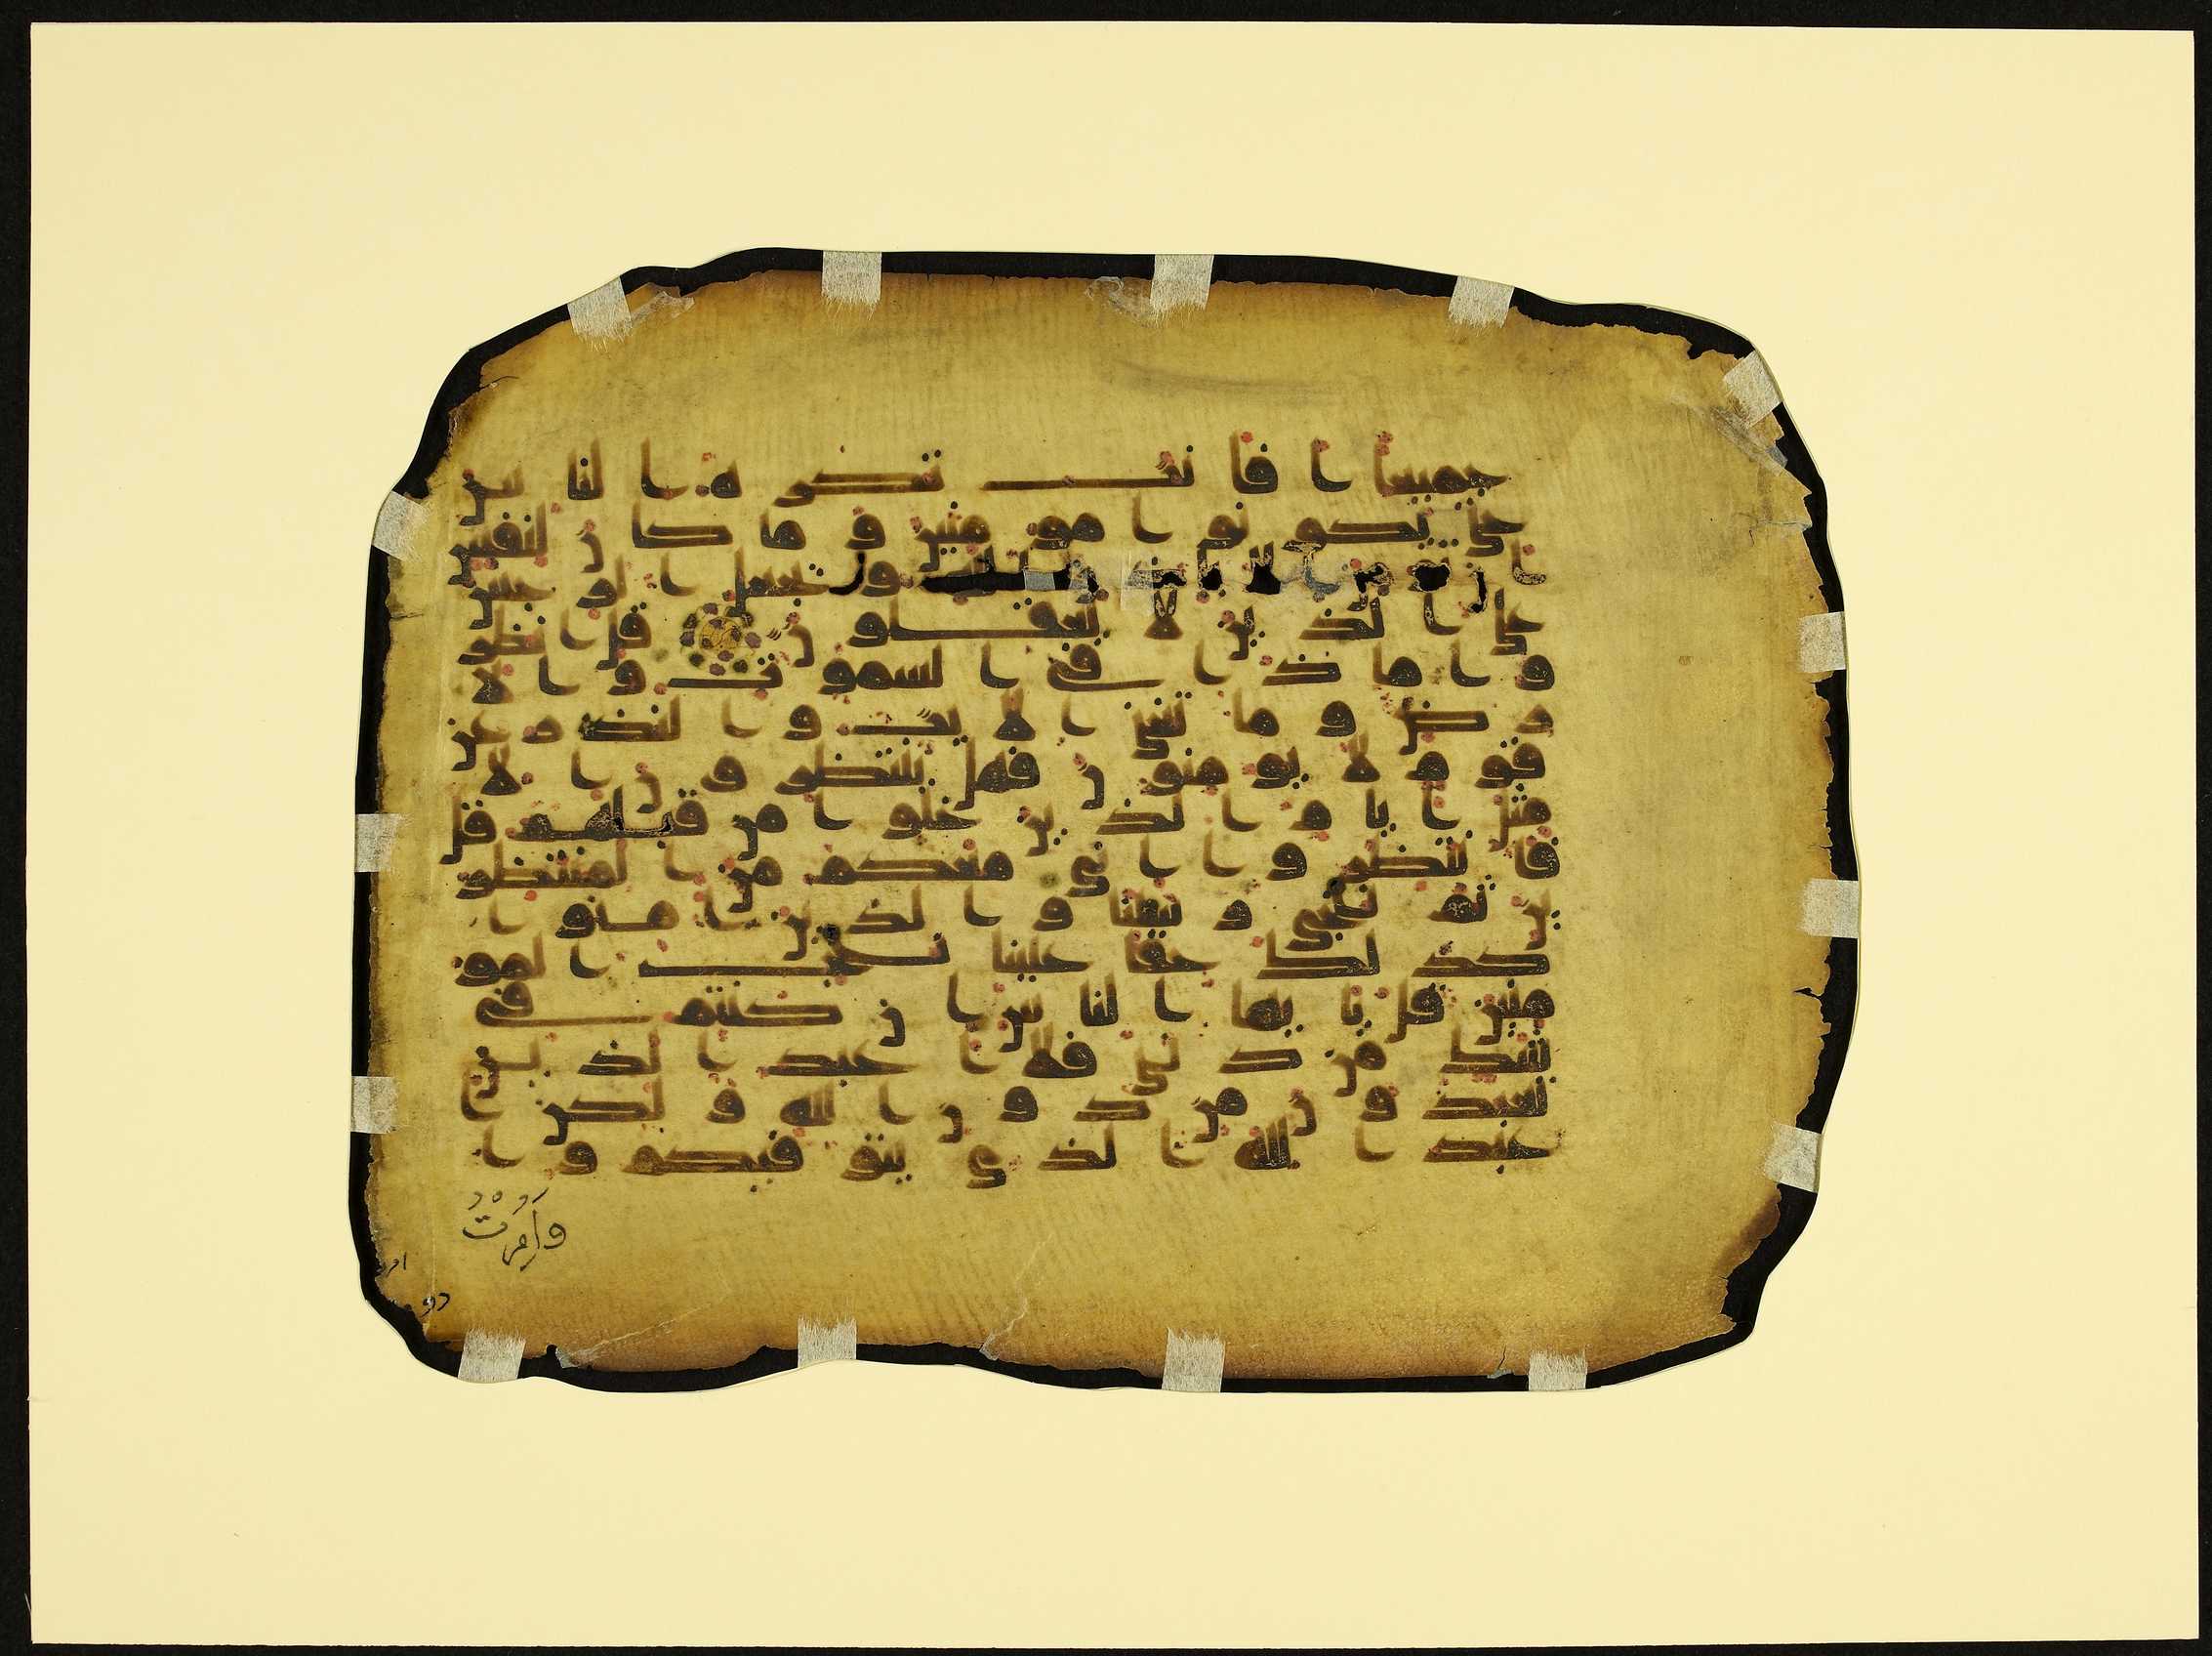 جميعا ا فا نت تكر ه ا لنا س
حتى يكو نو ا مو منين و ما كا ن لنفس
ا ن تو من ا لا با ذ ن ا لله و يجعل ا لر جس
على ا لذ ين لا يعقلو ن قل ا نظر
و ا ما ذ ا في ا لسمو ت و ا لا
ر ض و ما تغني ا لا يت و ا لنذ ر عن
قو م لا يو منو ن فهل ينتظر و ن ا لا
مثل ا يا م ا لذ ين خلو ا من قبلهم قل
فا نتظر و ا ا ني معكم من ا لمنتظر
ين ثم ننجي ر سلنا و ا لذ ين ا منو ا
كذ لك حقا علينا ننج ا لمو
منين قل يا يها ا لنا س ا ن كنتم في
شك من د يني فلا ا عبد ا لذ ين
تعبد و ن من د و ن ا لله و لكن ا
عبد ا لله ا لذ ي يتو فيكم و ا
وامرت